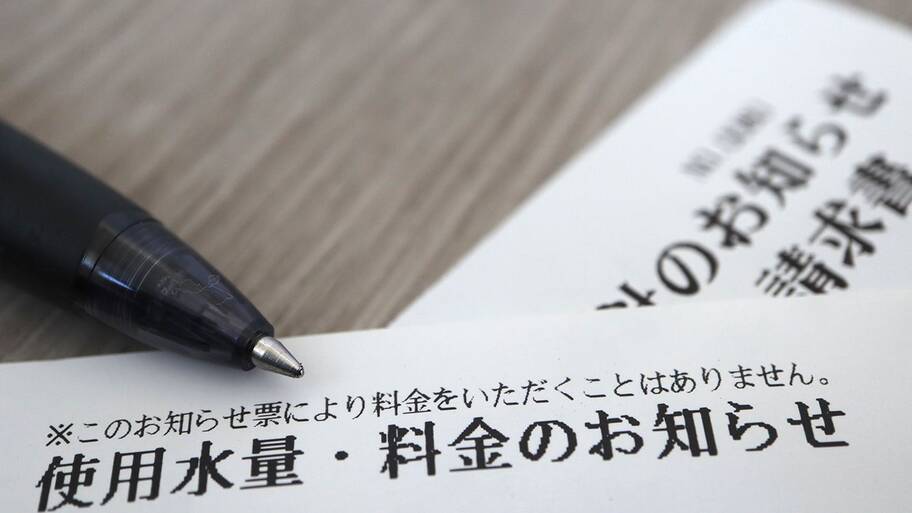 のお知らせ
請求書
※このお知らせ票により料金をいただくことはありません。
使用水量・料金のお知らせ